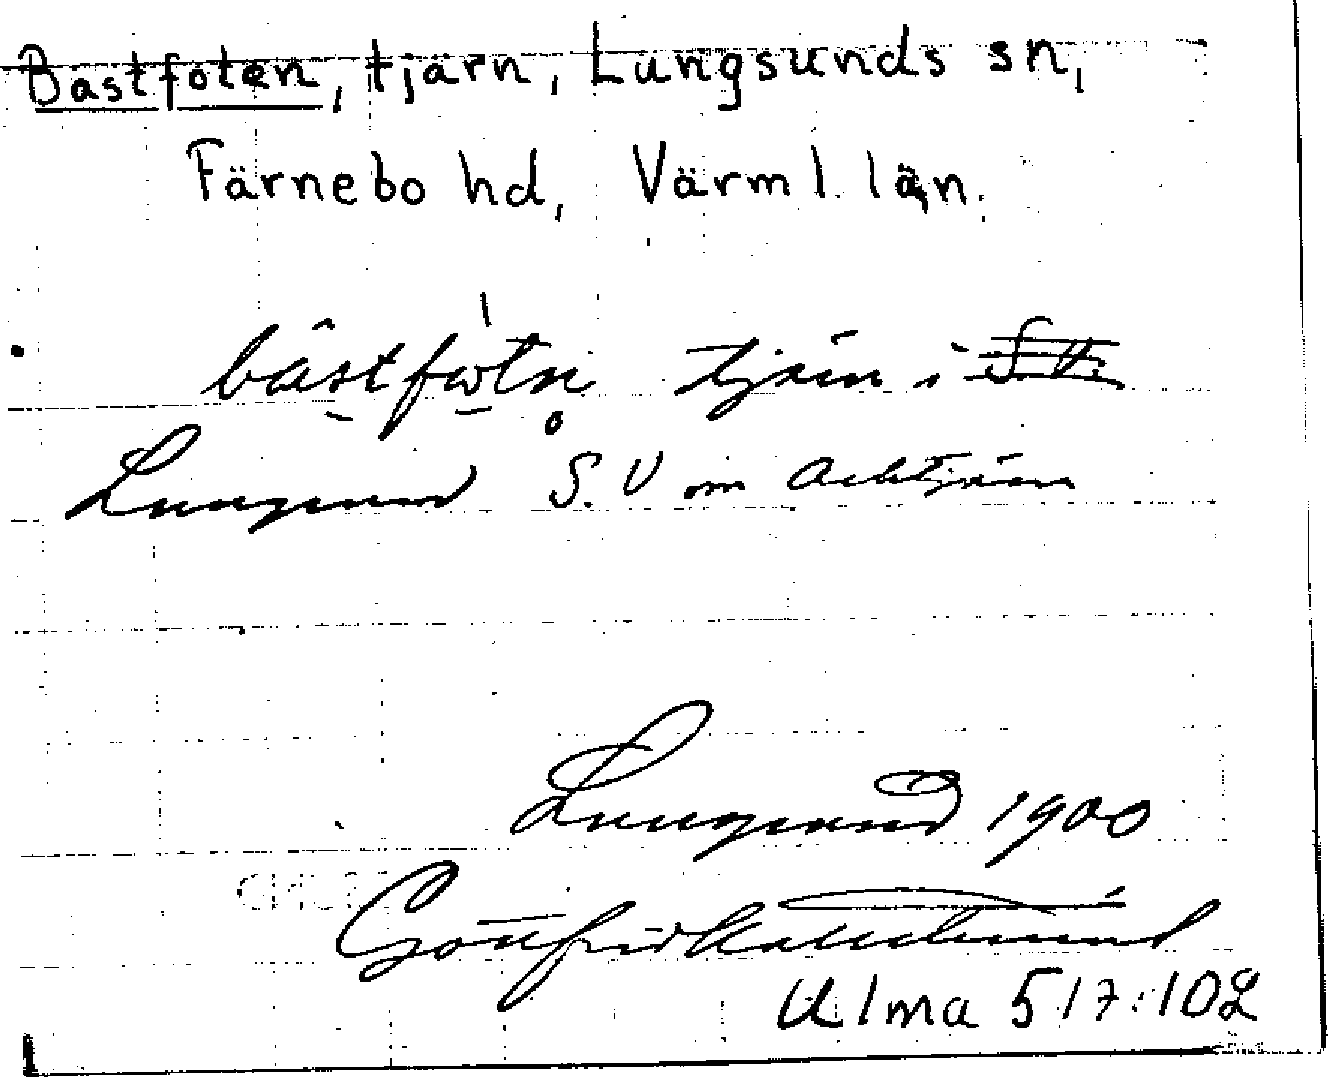 Bastfoten, tjärn, Lungsunds sn,
Färnebo hd, Värml. län.
tjärn i S.V.
Lungsund S.V om
Lungsund 1900
Gottfrid Kallstenius
Ulma 517:102